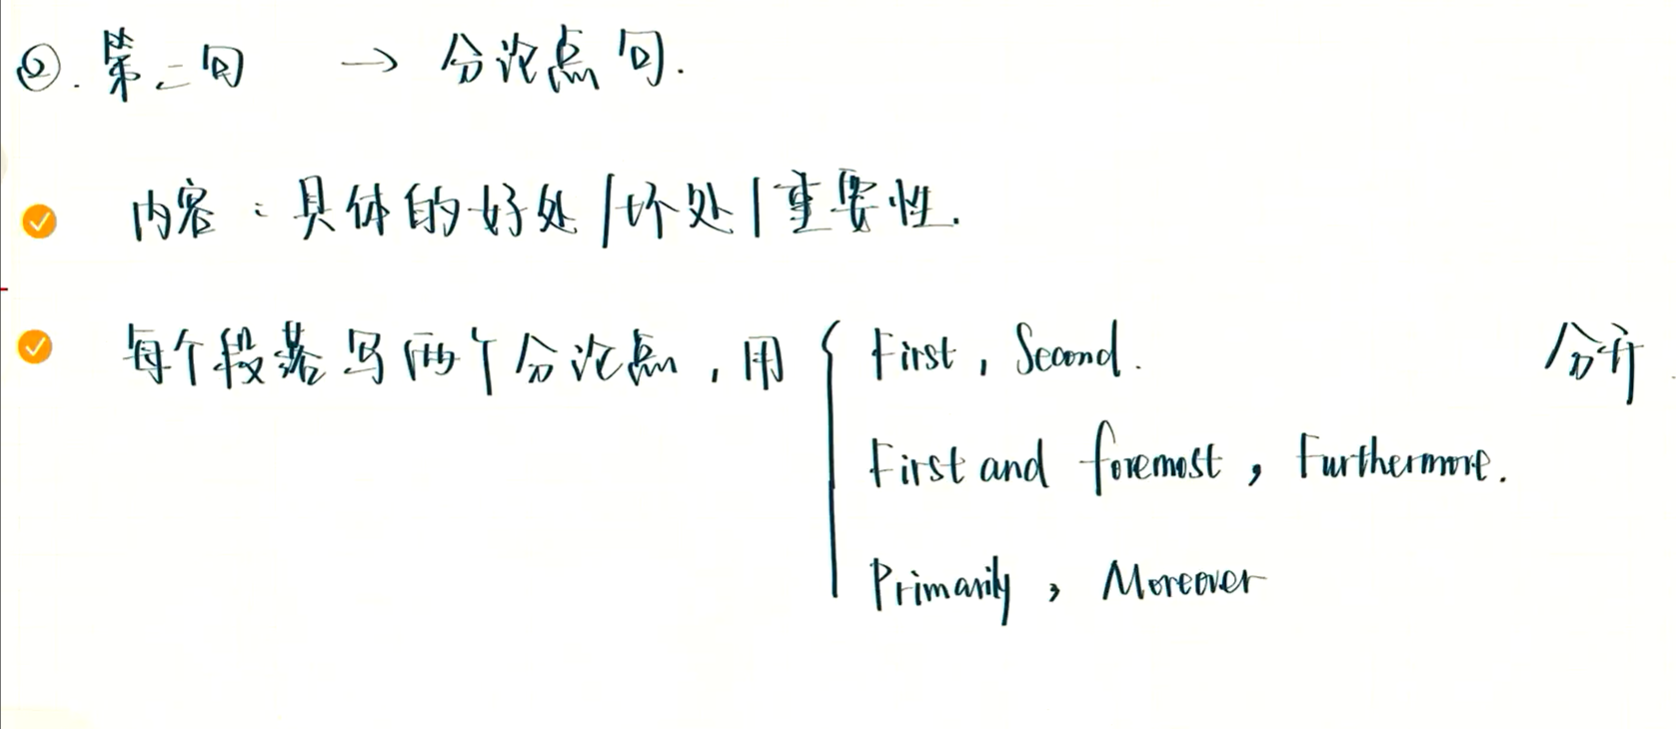 ②. 第二句 → 分论点句.
内容：具体的好处/坏处/重要性.
每个段落写两个分论点，用 { First, Second. 分开
First and foremost, Furthermore.
Primarily, Moreover